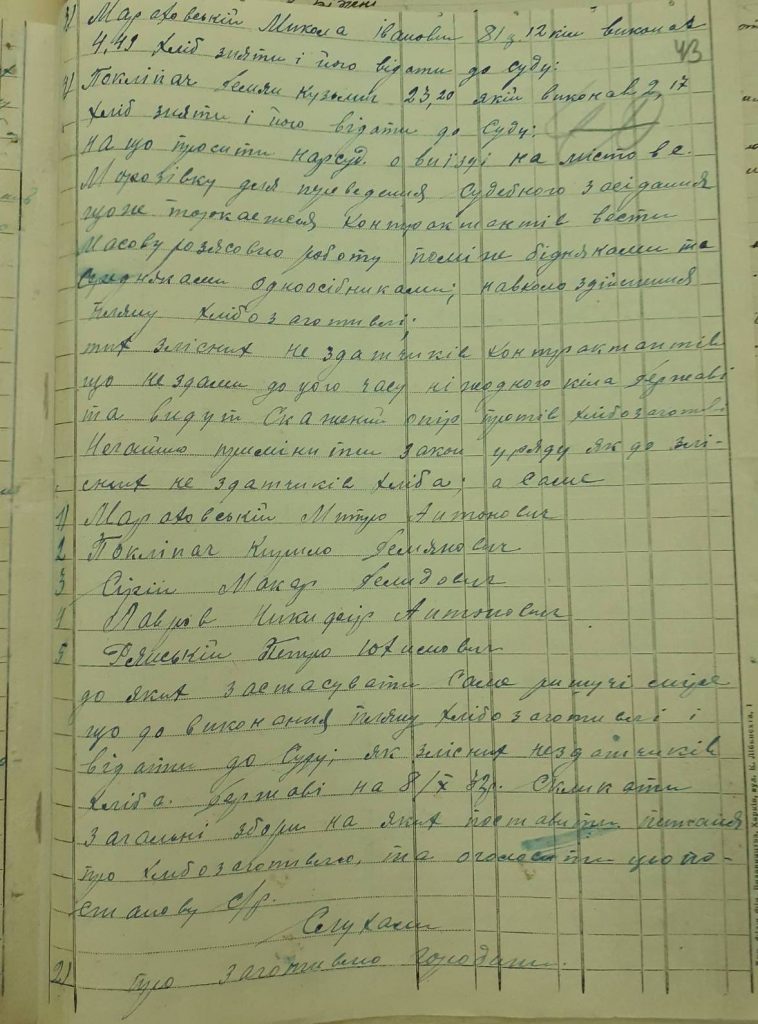 3) Мараховській Микола Іванович 81 ц. 12 кіл виконав
43
4,49 хліб зняти і його відати до суду:
4) Покліпач Демян Кузьмич 23,20 якій виконав 2,17
хліб зняти і його відати до суду;
на що просити нарсуд о виїзді на місто в с.
Морозівку для переведення судебного засідання
що-же торкаеться контрактантів вести
масову розясовчо роботу поміж бідняками та
середняками одноосібниками; навколо здійснення
пляну хлібозаготивлі;
тих злісних не здатчиків контрактантів
що не здали до цого часу ні жодного кіла державі
та видут скажений опір протів хлібозаготівлі
Негайно приміните закон уряду як до злі-
сних не здатчиків хліба; а саме
1) Мараховській Митро Антонович
2 Покліпач Кирило Демянович
3 Сірій Макар Демидович
4 Лавров Никифір Антонович
5 Рянській Петро Юхимович
до яких застасувати саме рішучі міри
що до виконання пляну хлібозаготивлі і
відати до суду; як злісних нездатчиків
хліба державі на 8/X 32р. Скликати
загальні збори на яких поставити питання
про хлібозаготивлю, та оголосити цю по-
станову с/р.
Слухали
2) Про заготивлю